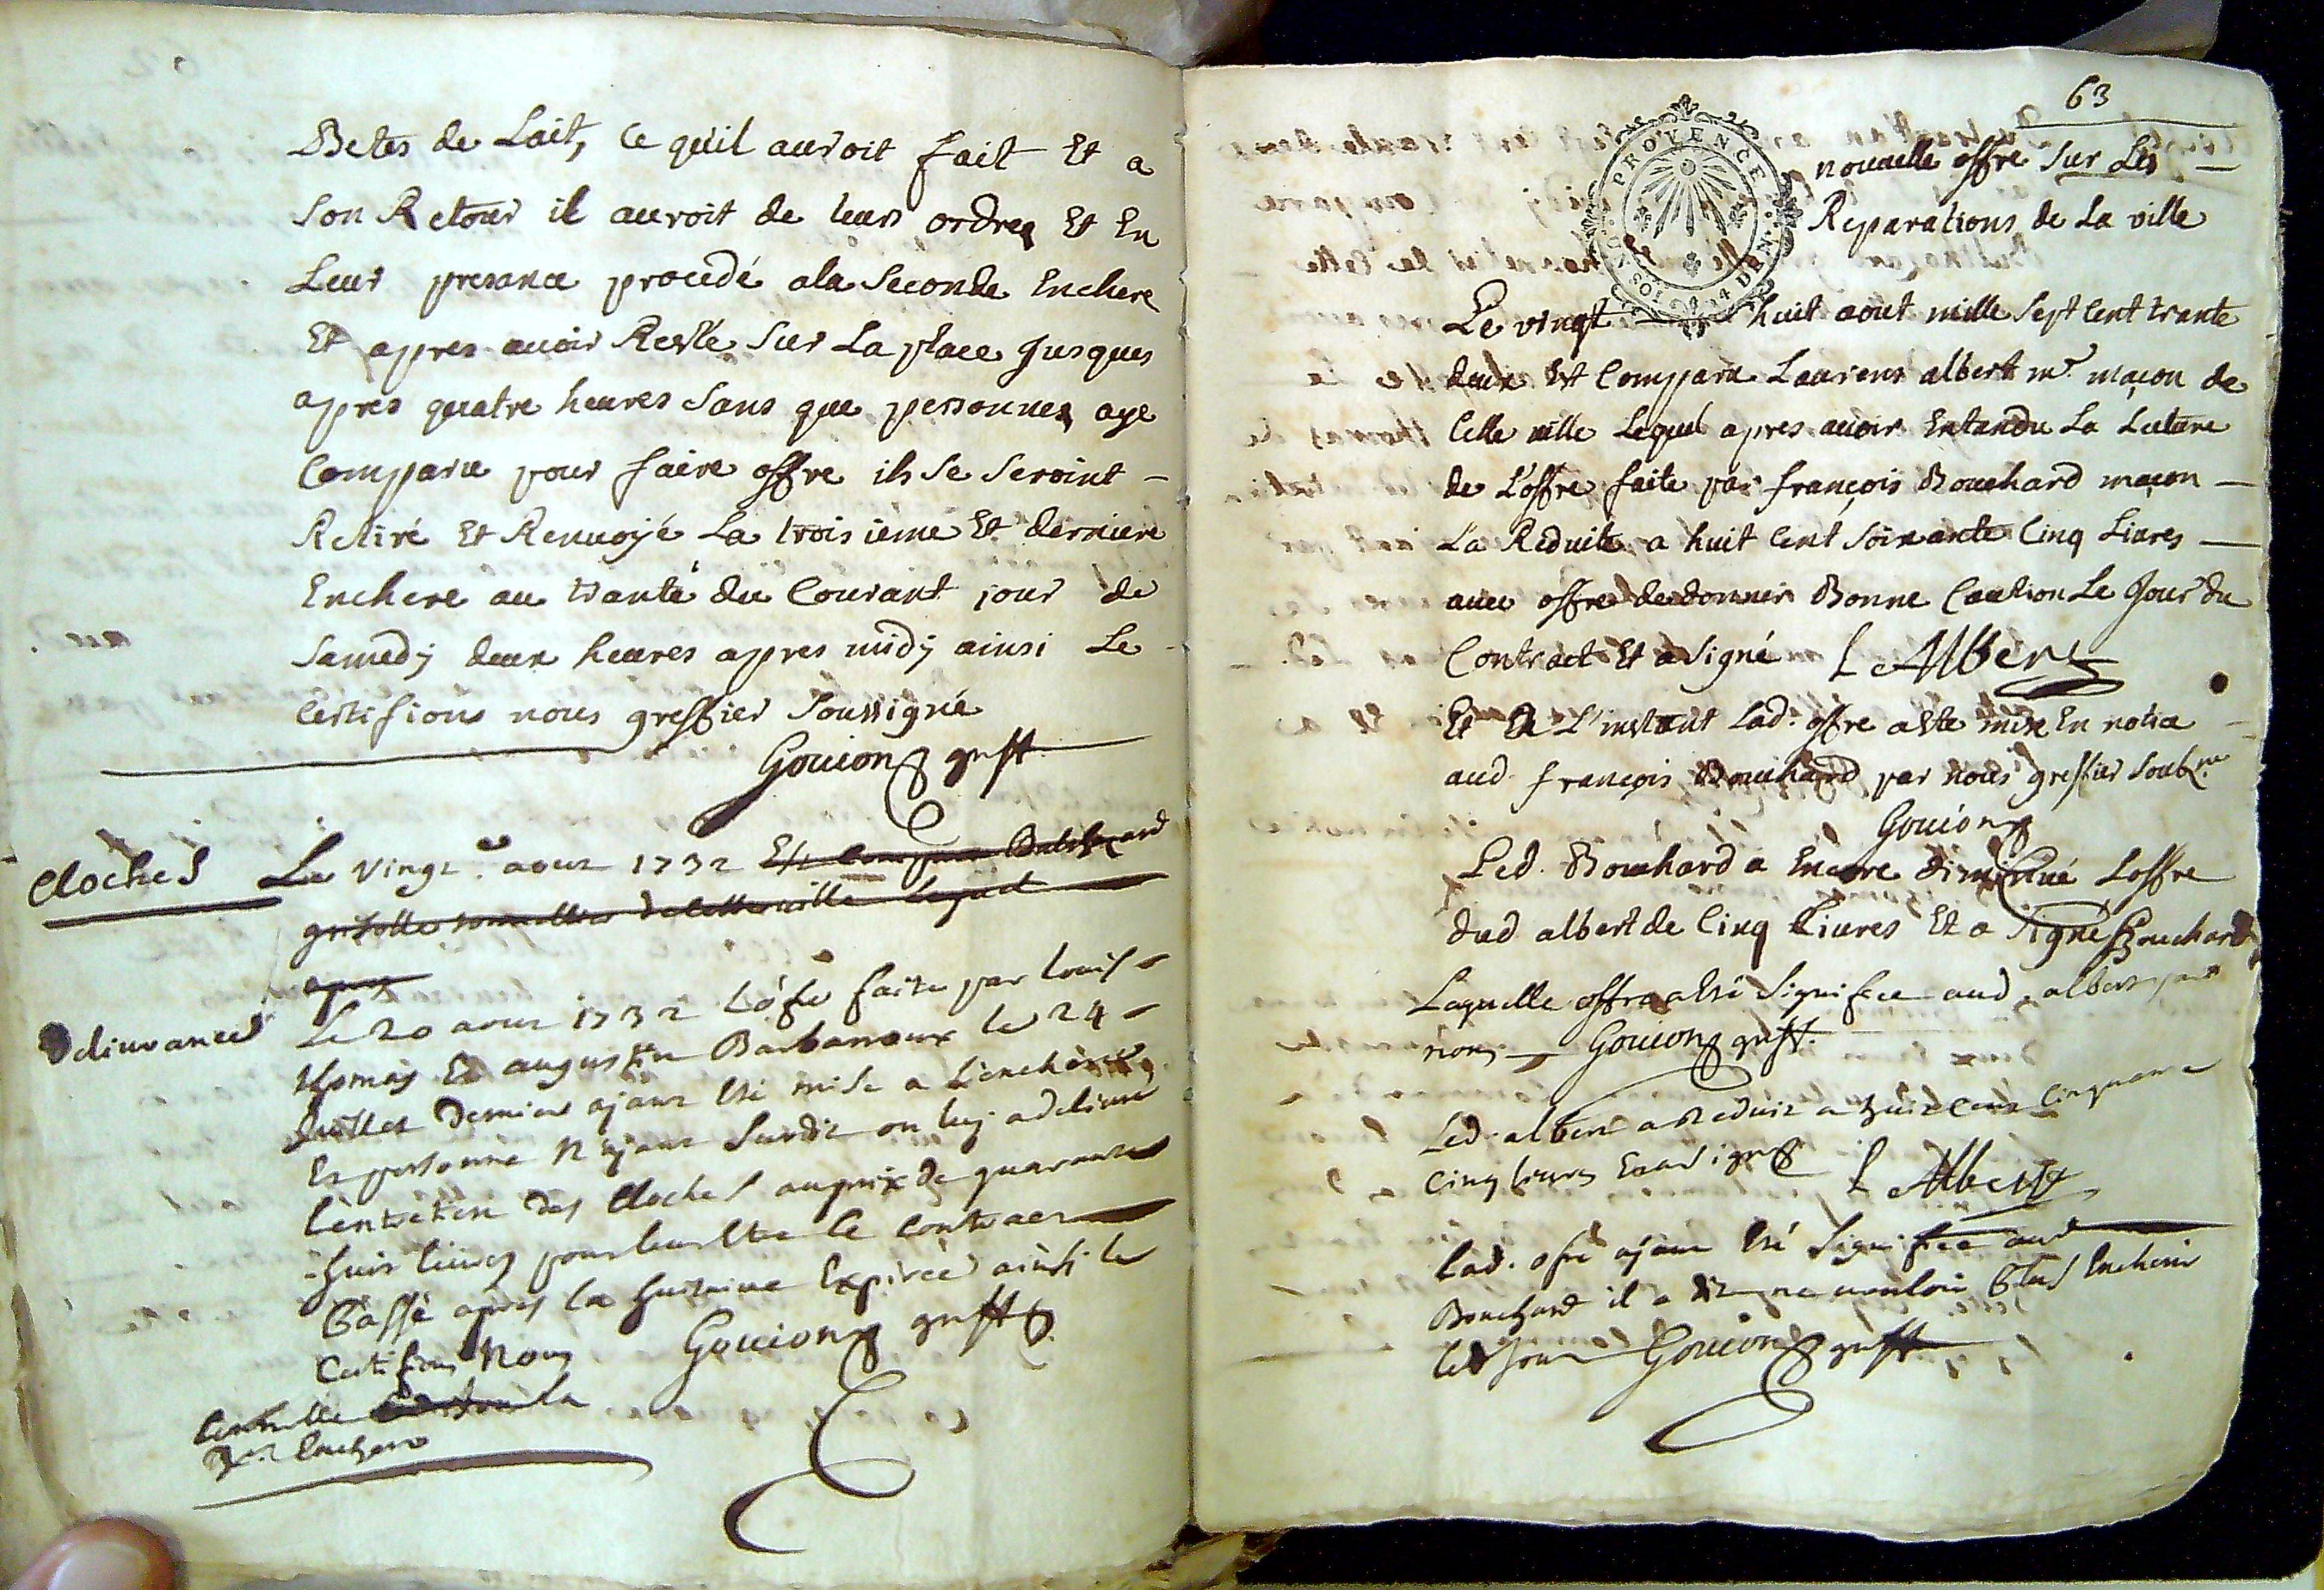 Betes de Lait, Ce quil auroit fait Et a
Son Retour il auroit de leurs ordres Et En
Leur presance procedé ala Seconde Enchere
Et apres auoir Resté Sur La place Jusques
apres quatre heures Sans que personnes aye
Comparu pour faire offre ils Se Seroint
Retiré Et Renuoyé La troisieme Et derniere
Enchere au trante du Courant jour de
Samedj deux heures apres midj ainsi Le
Certifions nous greffier Soussigné
Gouion greff.
Cloches
Le vingt aout 1732 Est Comparu
Lequel
apres
Deliurance
Le 20 aout 1732 L'ofre faite par Louis
thomas Et augustin Barbaroux le 24
Juillet dernier ajant Esté mise a L'enchere
Et personne N'ajant Surdit on luj a deliuré
L'entretien des Cloches au prix de quarante
huit liures pour leur Etre le Contract
Passé apres la huitaine Expirée ainsi le
Certifions Nous Gouion greff.
Enchere
63
PROVENCE
nouuelle offre Sur Les
Reparations de La ville
Le vingt huit aout mille Sept Cent trante
deux Est Comparu Laurens albert mr. maçon de
Cette ville Lequel apres auoir Entandu La Lecture
de L'offre faite par françois Bouchard maçon
La Reduite a huit Cent Soixante Cinq Liures
auec offre de donner Bonne Caution Le Jour du
Contract Et a Signé L Albert
Et a L'instant Lad. offre a Este mise En notice
aud. françois Bouchard par nous greffier Soubne
Gouion
Led. Bouchard a Encore diminué L'offre
dud albert de Cinq Liures Et a Signé Bouchard
Laquelle offre a Esté Signifiee aud. albert par
nous Gouion greff.
Led. albert a Reduit a huit Cent Cinquante
Cinq liures Et a Signé L Albert
Lad. ofre ajant Esté Signifiee aud
Bouchard il a dit ne vouloir Plus Encherir
led Jour Gouion greff